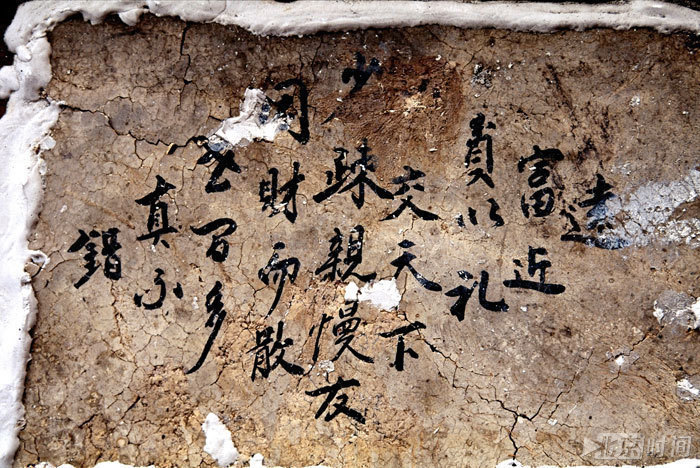 遠
富近
以礼
交天下
少疎親慢友
財而散
百多
真不
錯
北京时间